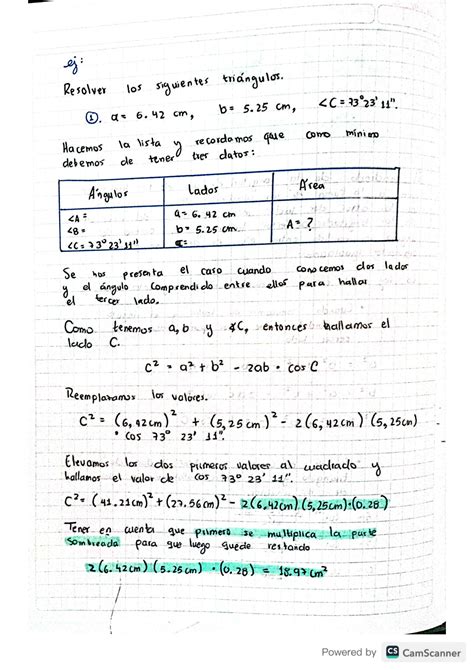 ej:
Resolver los siguientes triángulos.
①. a = 6.42 cm, b = 5.25 cm, <C = 73°23' 11".
Hacemos la lista y recordamos que como minimo
debemos de tener tres datos:
Ángulos Lados Área
<A = a = 6.42 cm
<B = b = 5.25 cm A = ?
<C = 73°23' 11" c =
Se nos presenta el caso cuando conocemos dos lados
y el ángulo comprendido entre ellos para hallar
el tercer lado.
Como tenemos a, b y ∢C, entonces hallamos el
lado C.
C² = a² + b² - 2ab • cos C
Reemplazamos los valores.
C² = (6,42cm)² + (5,25 cm)² - 2(6,42cm) (5,25cm)
• cos 73° 23' 11".
Elevamos los dos primeros valores al cuadrado y
hallamos el valor de cos 73° 23' 11".
C² = (41.21cm)² + (27.56cm)² - 2(6.42cm)(5,25cm)•(0.28)
Tener en cuenta que primero se multiplica la parte
sombreada para que luego quede restando
2(6.42cm)(5.25cm) • (0.28) = 18.97cm²
Powered by CS CamScanner